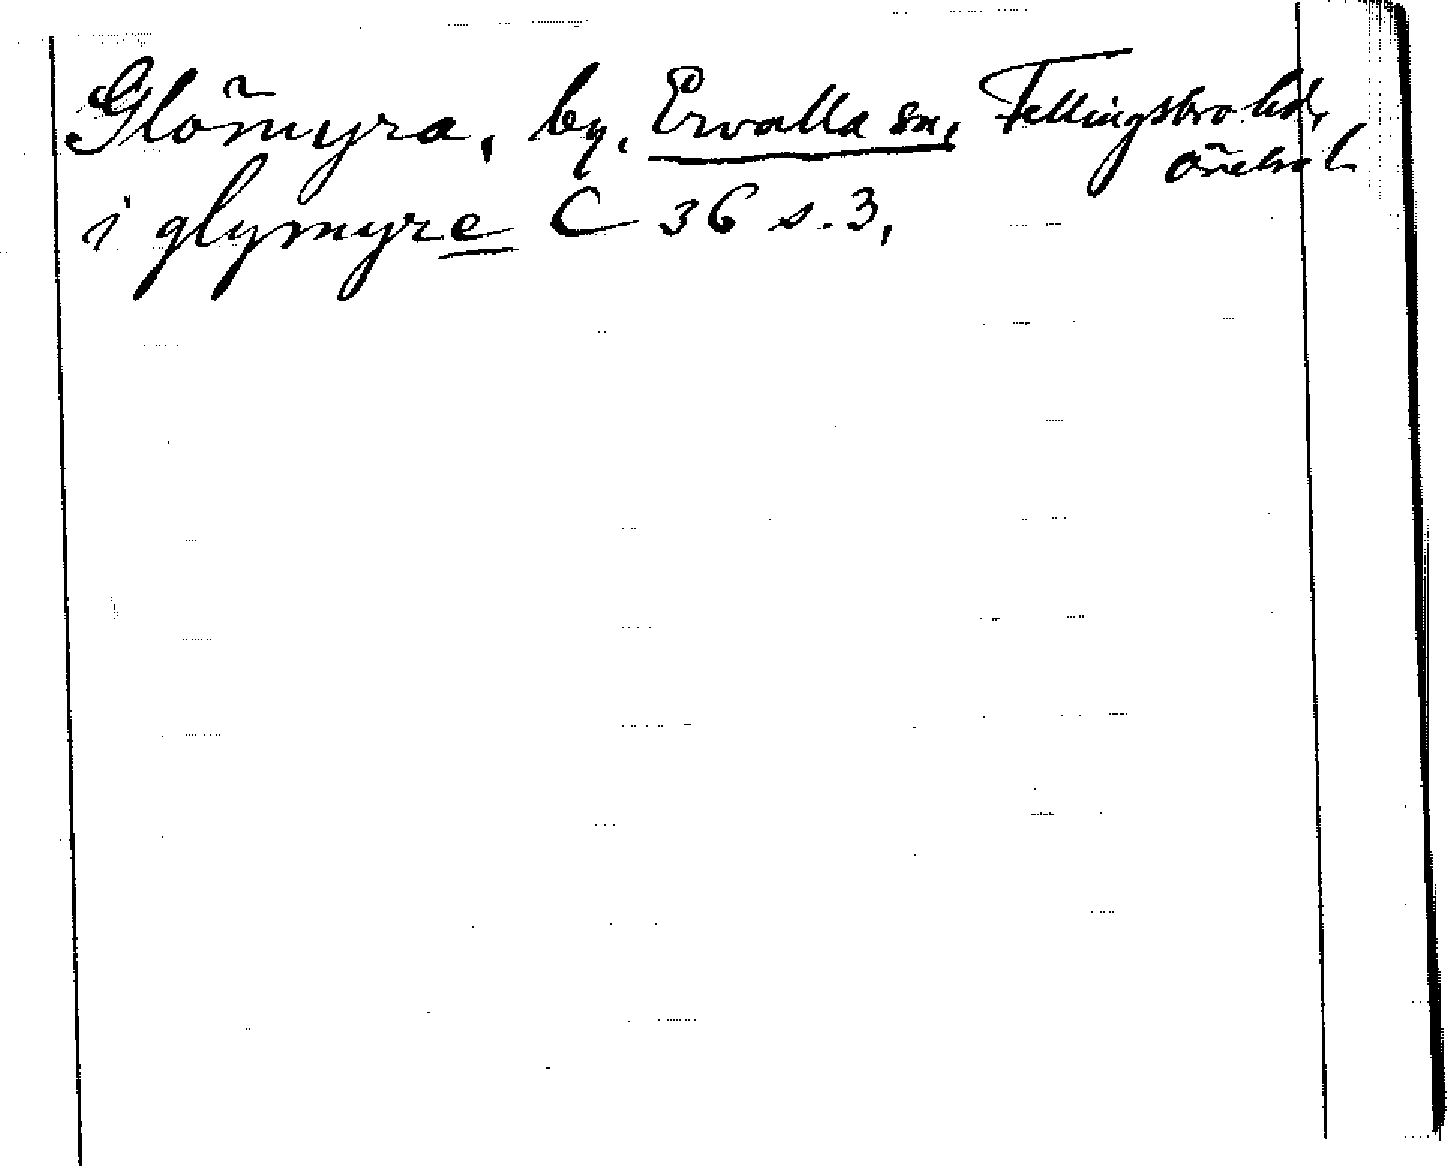 Glömyra, by, Ervalla sn, Fellingsbro hd,
Örebro l.
i glymyre C 36 s. 3,